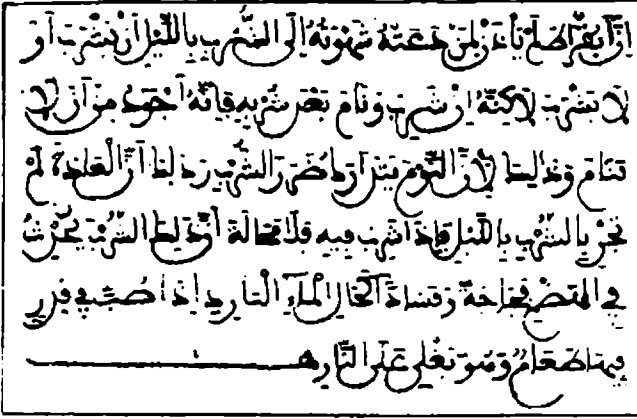 إنّ أبقراط لم يأذن لمن دعته شهوته إلى الشرب بالليل أن يشرب أو
لا يشرب لاكنّه إن شرب ونام بعد شربه فإنّه أجود من أن لا
ينام وذلك لأنّ النّوم يتدارك ضرر الشرب وذلك أنّ العادة لم
تجر بالشرب بالليل فإذا شرب فيه فلا محالة أنّ ذلك الشرب يحدث
في الهضم فجاجة وفساد كحال الماء البارد إذا صبّ في قدر
فيها طعام وهو تغلي على النّار هـ